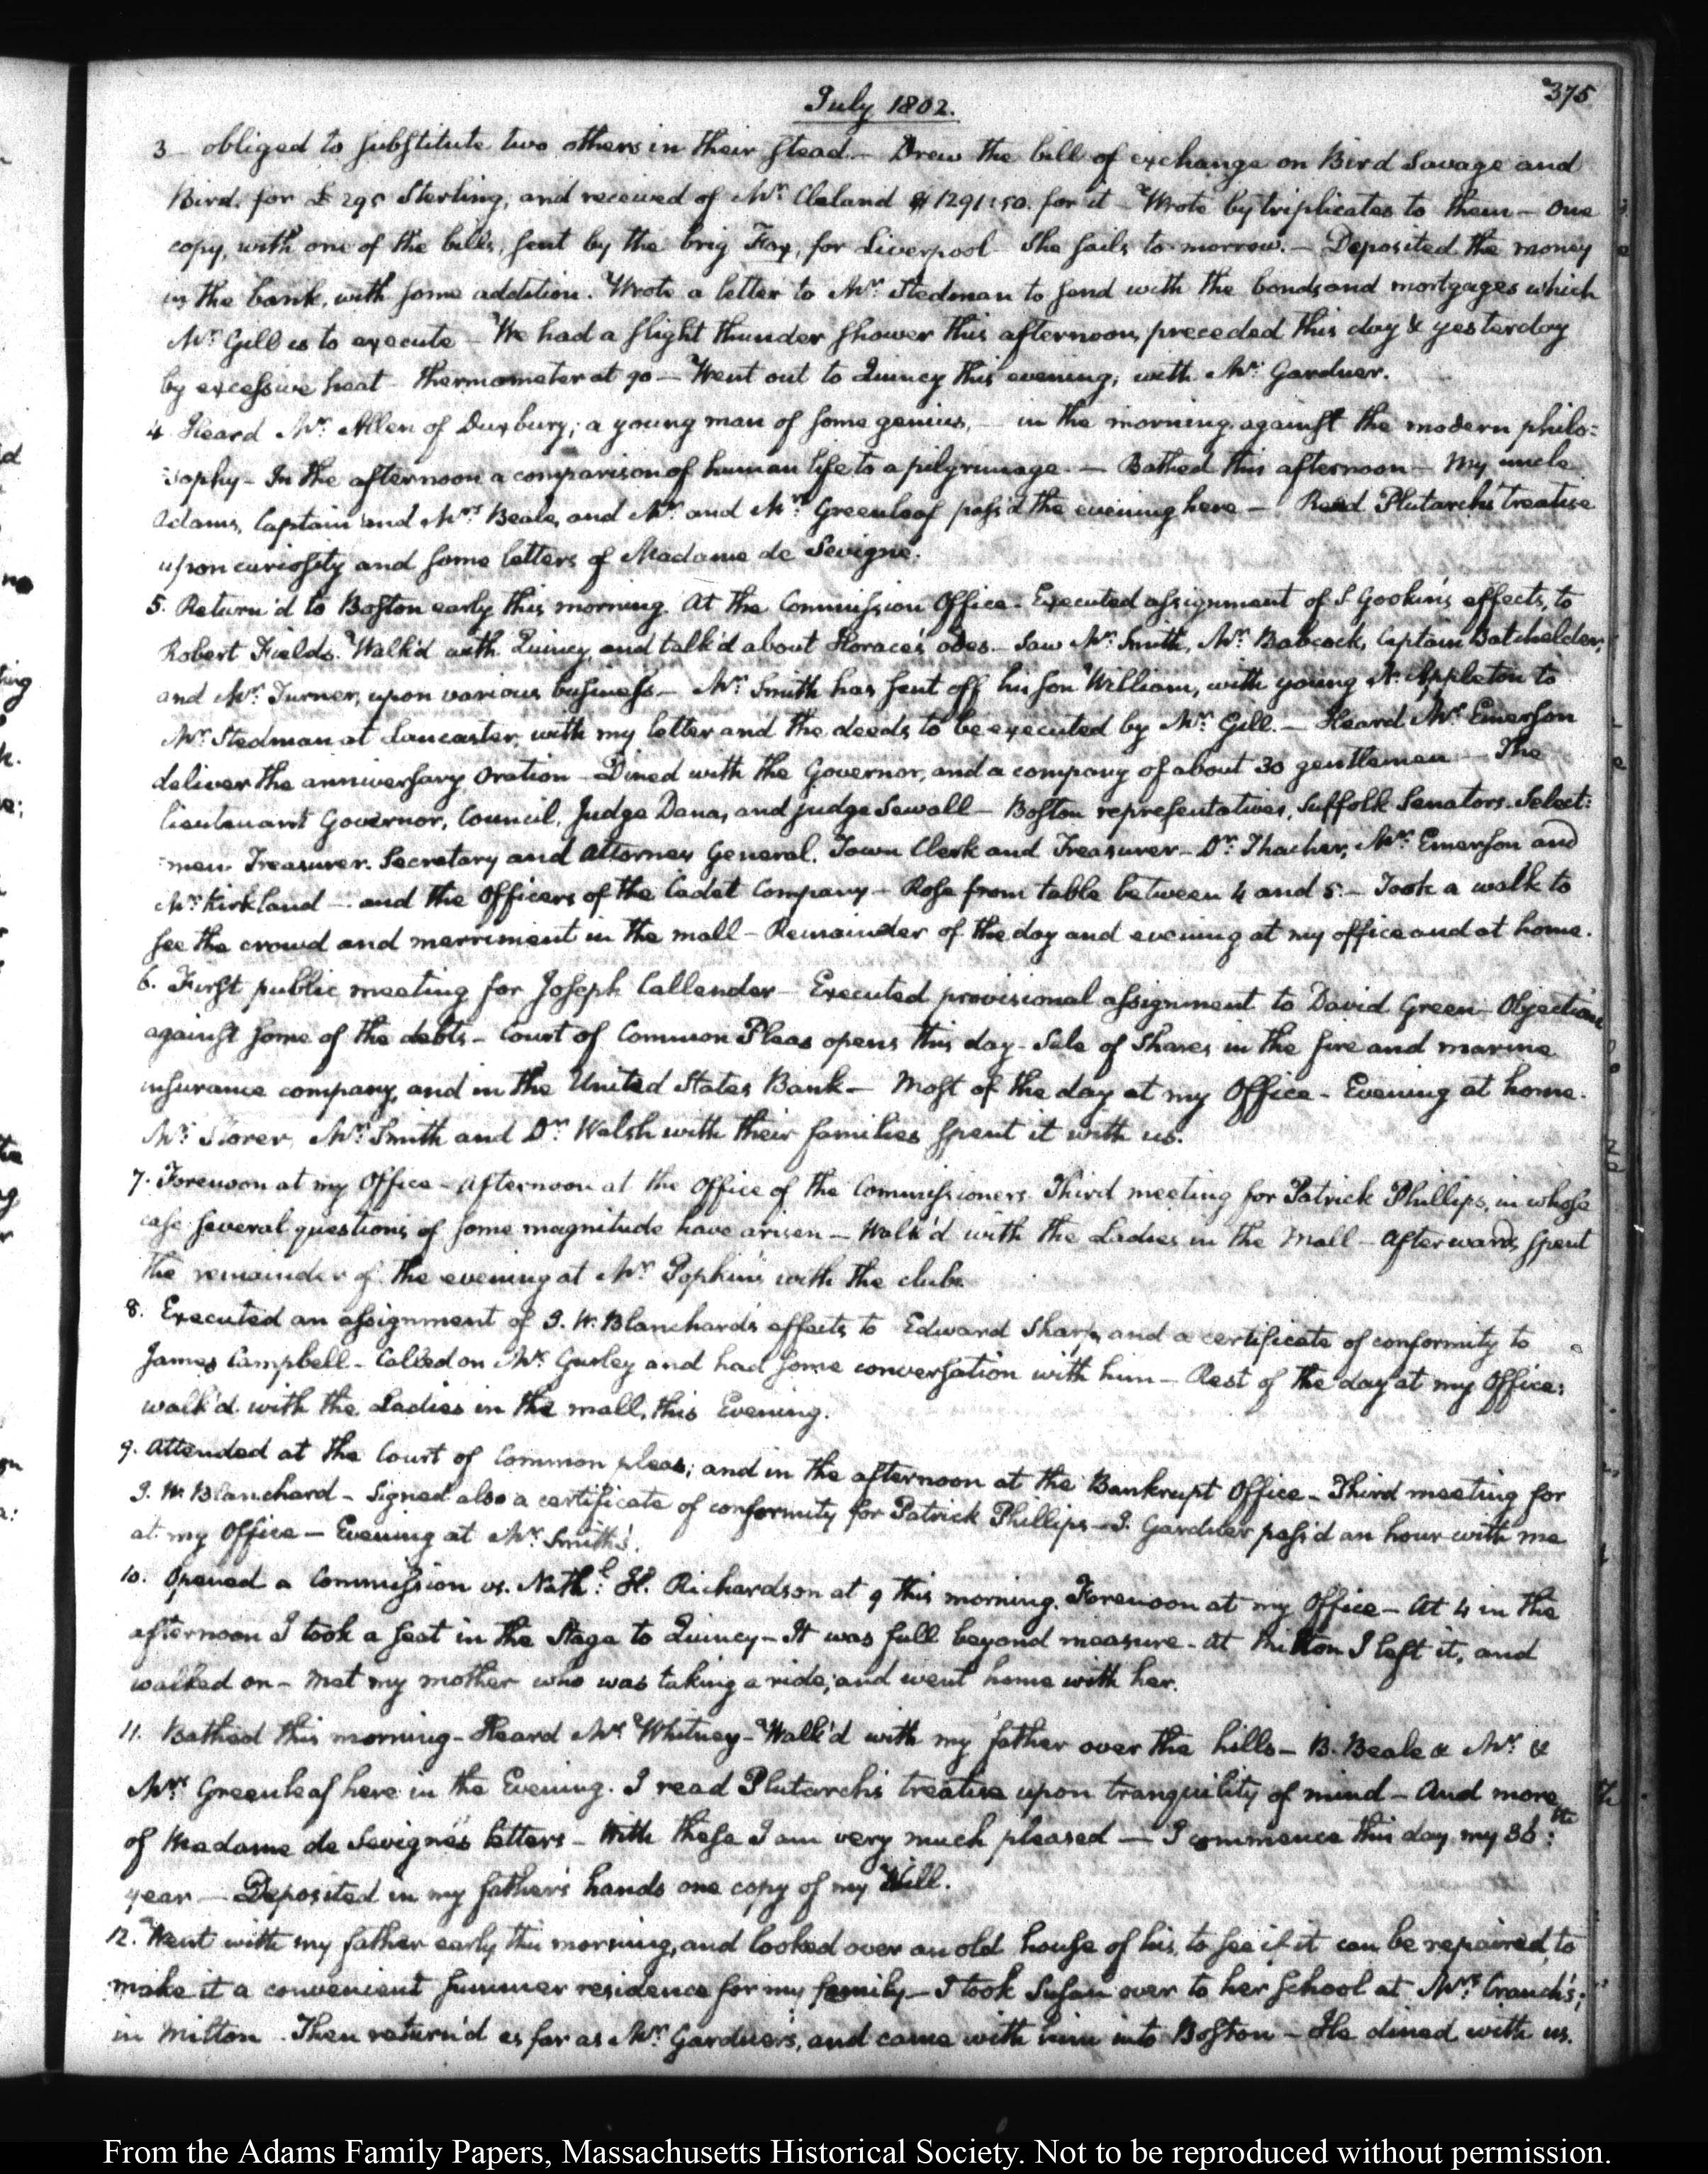 July 1802.
375
3 obliged to substitute two others in their stead.— Drew the bill of exchange on Bird Savage and
Bird. for £ 295 Sterling; and received of Mr. Cleland $1291:50. for it — Wrote by triplicates to them — One
copy, with one of the bills, sent by the brig Fox, for Liverpool She sails to-morrow.— Deposited the money
in the bank, with some addition. Wrote a letter to Mr. Stedman to send with the bonds and mortgages which
Mr. Gill is to execute — We had a slight thunder shower this afternoon, preceded this day & yesterday
by excessive heat — thermometer at 90 — Went out to Quincy this evening; with Mr. Gardner.
4. Heard Mr. Allen of Duxbury; a young man of some genius, — in the morning against the modern philo:
:sophy — In the afternoon a comparison of human life to a pilgrimage. — Bathed this afternoon — My uncle
Adams, Captain and Mrs. Beale, and Mr. and Mrs. Greenleaf pass'd the evening here — Read Plutarch's treatise
upon curiosity and some letters of Madame de Sevigné.
5. Return'd to Boston early this morning. At the Commission Office — Executed assignment of S. Gookin's effects, to
Robert Fields. Walk'd with Quincy, and talk'd about Horace's odes — Saw Mr. Smith, Mr. Babcock, Captain Batchelder,
and Mr. Turner, upon various business — Mr. Smith has sent off his son William, with young N. Appleton to
Mr. Stedman at Lancaster, with my letter and the deeds to be executed by Mr. Gill. — Heard Mr. Emerson
deliver the anniversary Oration — Dined with the Governor, and a company of about 30 gentlemen — The
lieutenant Governor, Council, Judge Dana, and judge Sewall — Boston representatives, Suffolk Senators. Select:
:men Treasurer. Secretary and Attorney General. Town Clerk and Treasurer — Dr. Thacher, Mr. Emerson and
Mr. Kirkland — and the Officers of the Cadet Company — Rose from table between 4 and 5 — Took a walk to
see the crowd and merriment in the mall — Remainder of the day and evening at my office and at home.
6. First public meeting for Joseph Callender — Executed provisional assignment to David Green — Objections
against some of the debts — Court of Common Pleas opens this day — Sale of Shares in the fire and marine
insurance company, and in the United States Bank — Most of the day at my Office — Evening at home.
Mr. Storer, Mr. Smith and Dr. Welsh with their families spent it with us.
7. Forenoon at my Office — Afternoon at the Office of the Commissioners. Third meeting for Patrick Phillips, in whose
case several questions of some magnitude have arisen — Walk'd with the Ladies in the Mall — Afterwards spent
the remainder of the evening at Mr. Popkin's with the club.
8. Executed an assignment of J. W. Blanchard's effects to Edward Sharp, and a certificate of conformity to
James Campbell — Called on Mr. Gurley and had some conversation with him — Rest of the day at my Office:
walk'd with the Ladies in the mall, this Evening.
9. Attended at the Court of Common pleas; and in the afternoon at the Bankrupt Office — Third meeting for
J. W. Blanchard — Signed also a certificate of conformity for Patrick Phillips — J. Gardner pass'd an hour with me
at my Office — Evening at Mr. Smith's.
10. Opened a Commission vs. Nathl: H. Richardson at 9 this morning. Forenoon at my Office — At 4 in the
afternoon I took a seat in the Stage to Quincy — It was full beyond measure — At Milton I left it, and
walked on — Met my mother who was taking a ride; and went home with her.
11. Bathed this morning — Heard Mr. Whitney — Walk'd with my father over the hills — B. Beale & Mr. &
Mrs. Greenleaf here in the Evening. I read Plutarch's treatise upon tranquility of mind — And more
of Madame de Sevigné's letters — With these I am very much pleased — I commence this day my 36:th
year — Deposited in my father's hands one copy of my Will.
12. Went with my father early this morning, and looked over an old house of his, to see if it can be repaired, to
make it a convenient summer residence for my family — I took Susan over to her school at Mrs. Cranch's;
in Milton. Then return'd as far as Mr. Gardner's, and came with him into Boston — He dined with us.
From the Adams Family Papers, Massachusetts Historical Society. Not to be reproduced without permission.